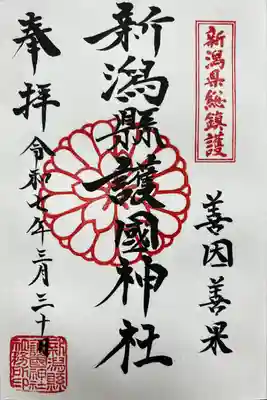 新潟県総鎮護
善因善果
新潟縣護國神社
奉拝
令和七年三月三十日
新潟縣護國神社社務所印